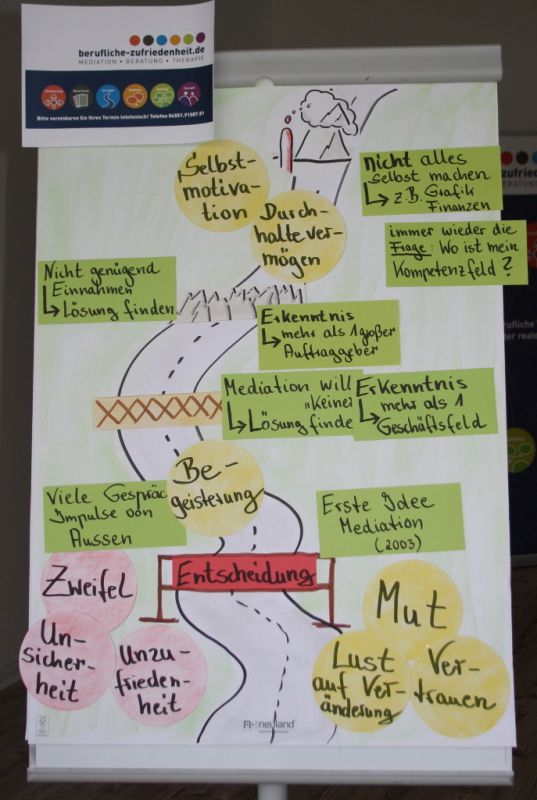 berufliche-zufriedenheit.de
MEDIATION • BERATUNG • THERAPIE
Bitte vereinbaren Sie Ihren Termin telefonisch!
Selbst-
motiva-
tion
Durch-
haltever-
mögen
nicht alles
selbst machen
↳ z.B. Grafik
Finanzen
immer wieder die
Frage: Wo ist mein
Kompetenzfeld?
Nicht genügend
Einnahmen
↳ Lösung finden
Erkenntnis
↳ mehr als 1 großer
Auftraggeber
Mediation will
"keiner
↳ Lösung finde
Erkenntnis
↳ mehr als 1
Geschäftsfeld
Be-
geisterung
Viele Gespräc
Impulse von
Aussen
Erste Idee
Mediation
(2003)
Entscheidung
Zweifel
Un-
sicher-
heit
Unzu-
frieden-
heit
Mut
Lust
auf Ver-
änderung
Ver-
trauen
neuland